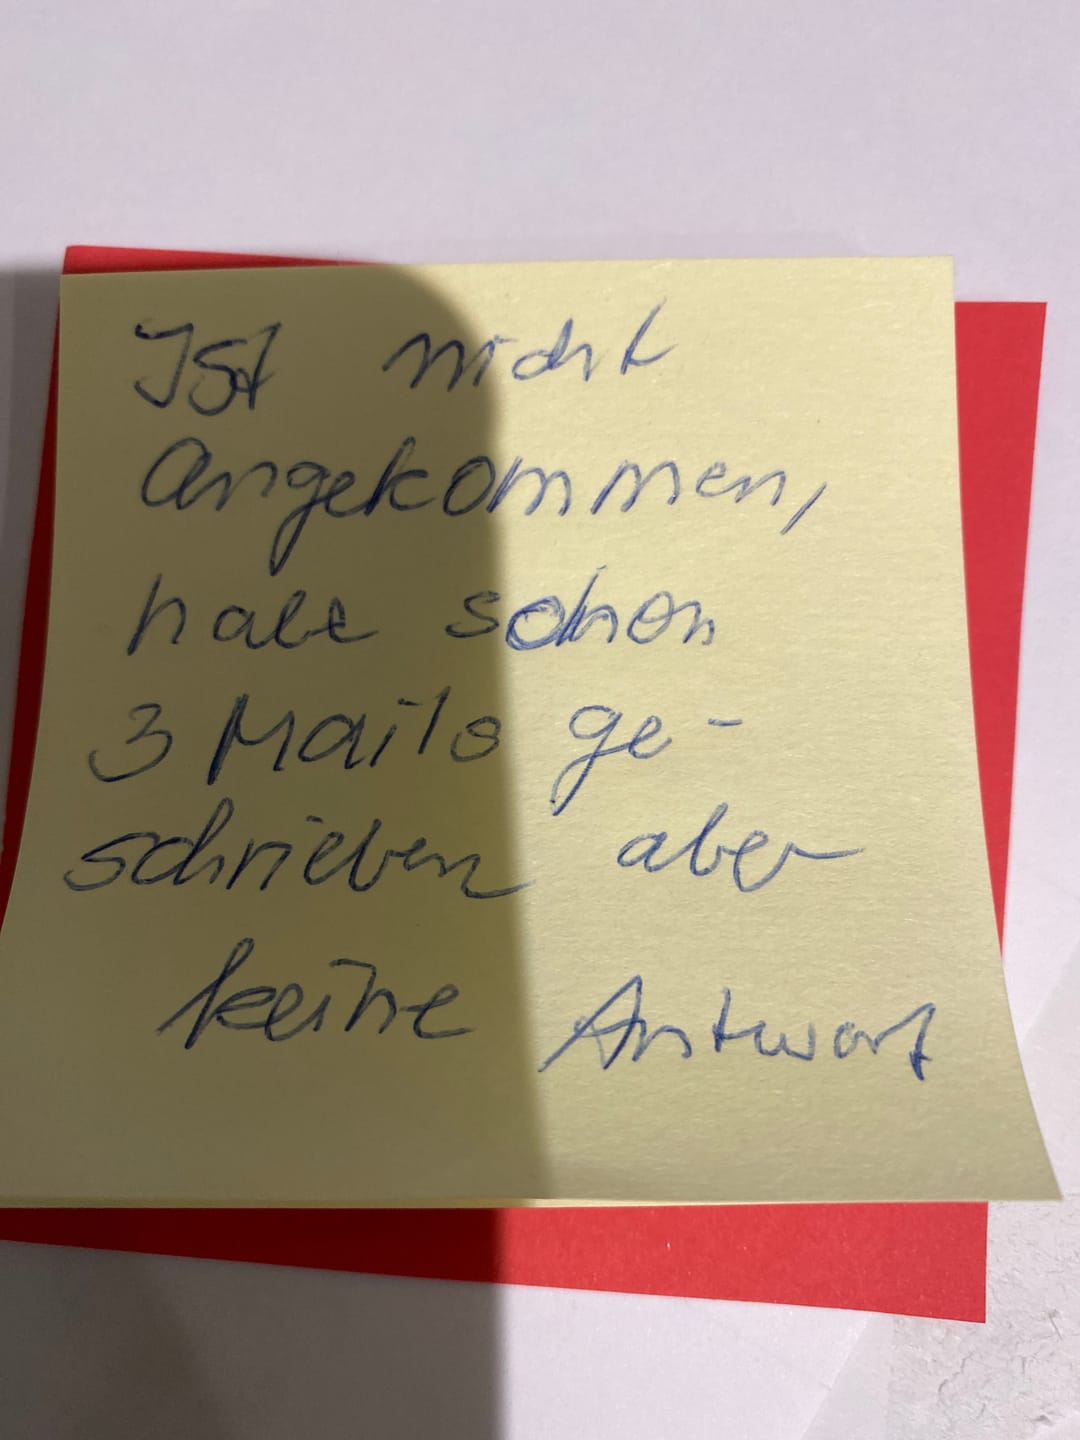 Ist nicht
angekommen,
habe schon
3 Mails ge-
schrieben aber
keine Antwort